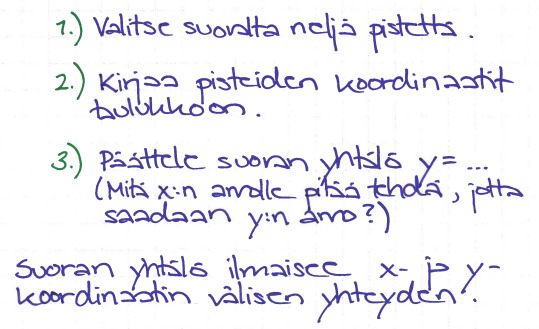 1.) Valitse suoralta neljä pistettä.
2.) Kirjaa pisteiden koordinaatit
taulukkoon.
3.) Päättele suoran yhtälö y= ...
(Mitä x:n arvolle pitää tehdä, jotta
saadaan y:n arvo?)
Suoran yhtälö ilmaisee x- ja y-
koordinaatin välisen yhteyden!